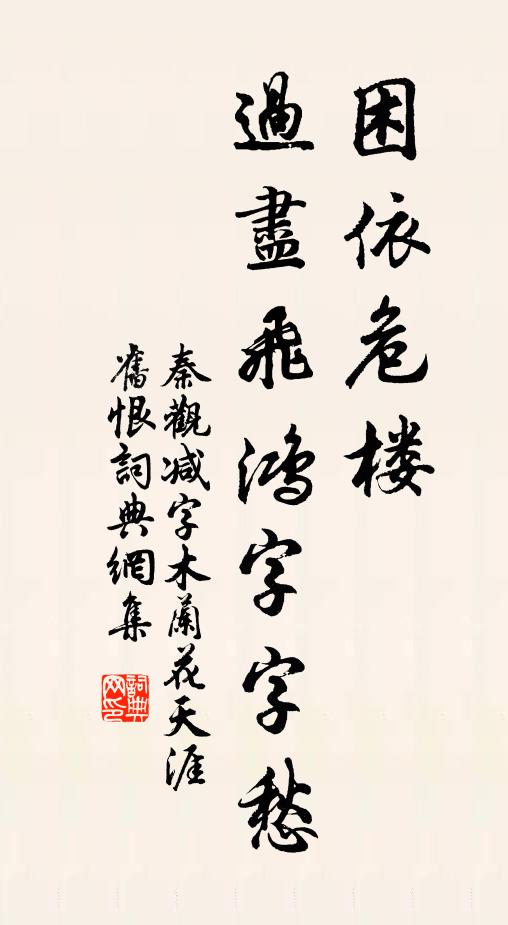 困依危楼
過盡飛鴻字字愁
秦觀减字木蘭花天涯
舊恨詞典網集
詞典网印